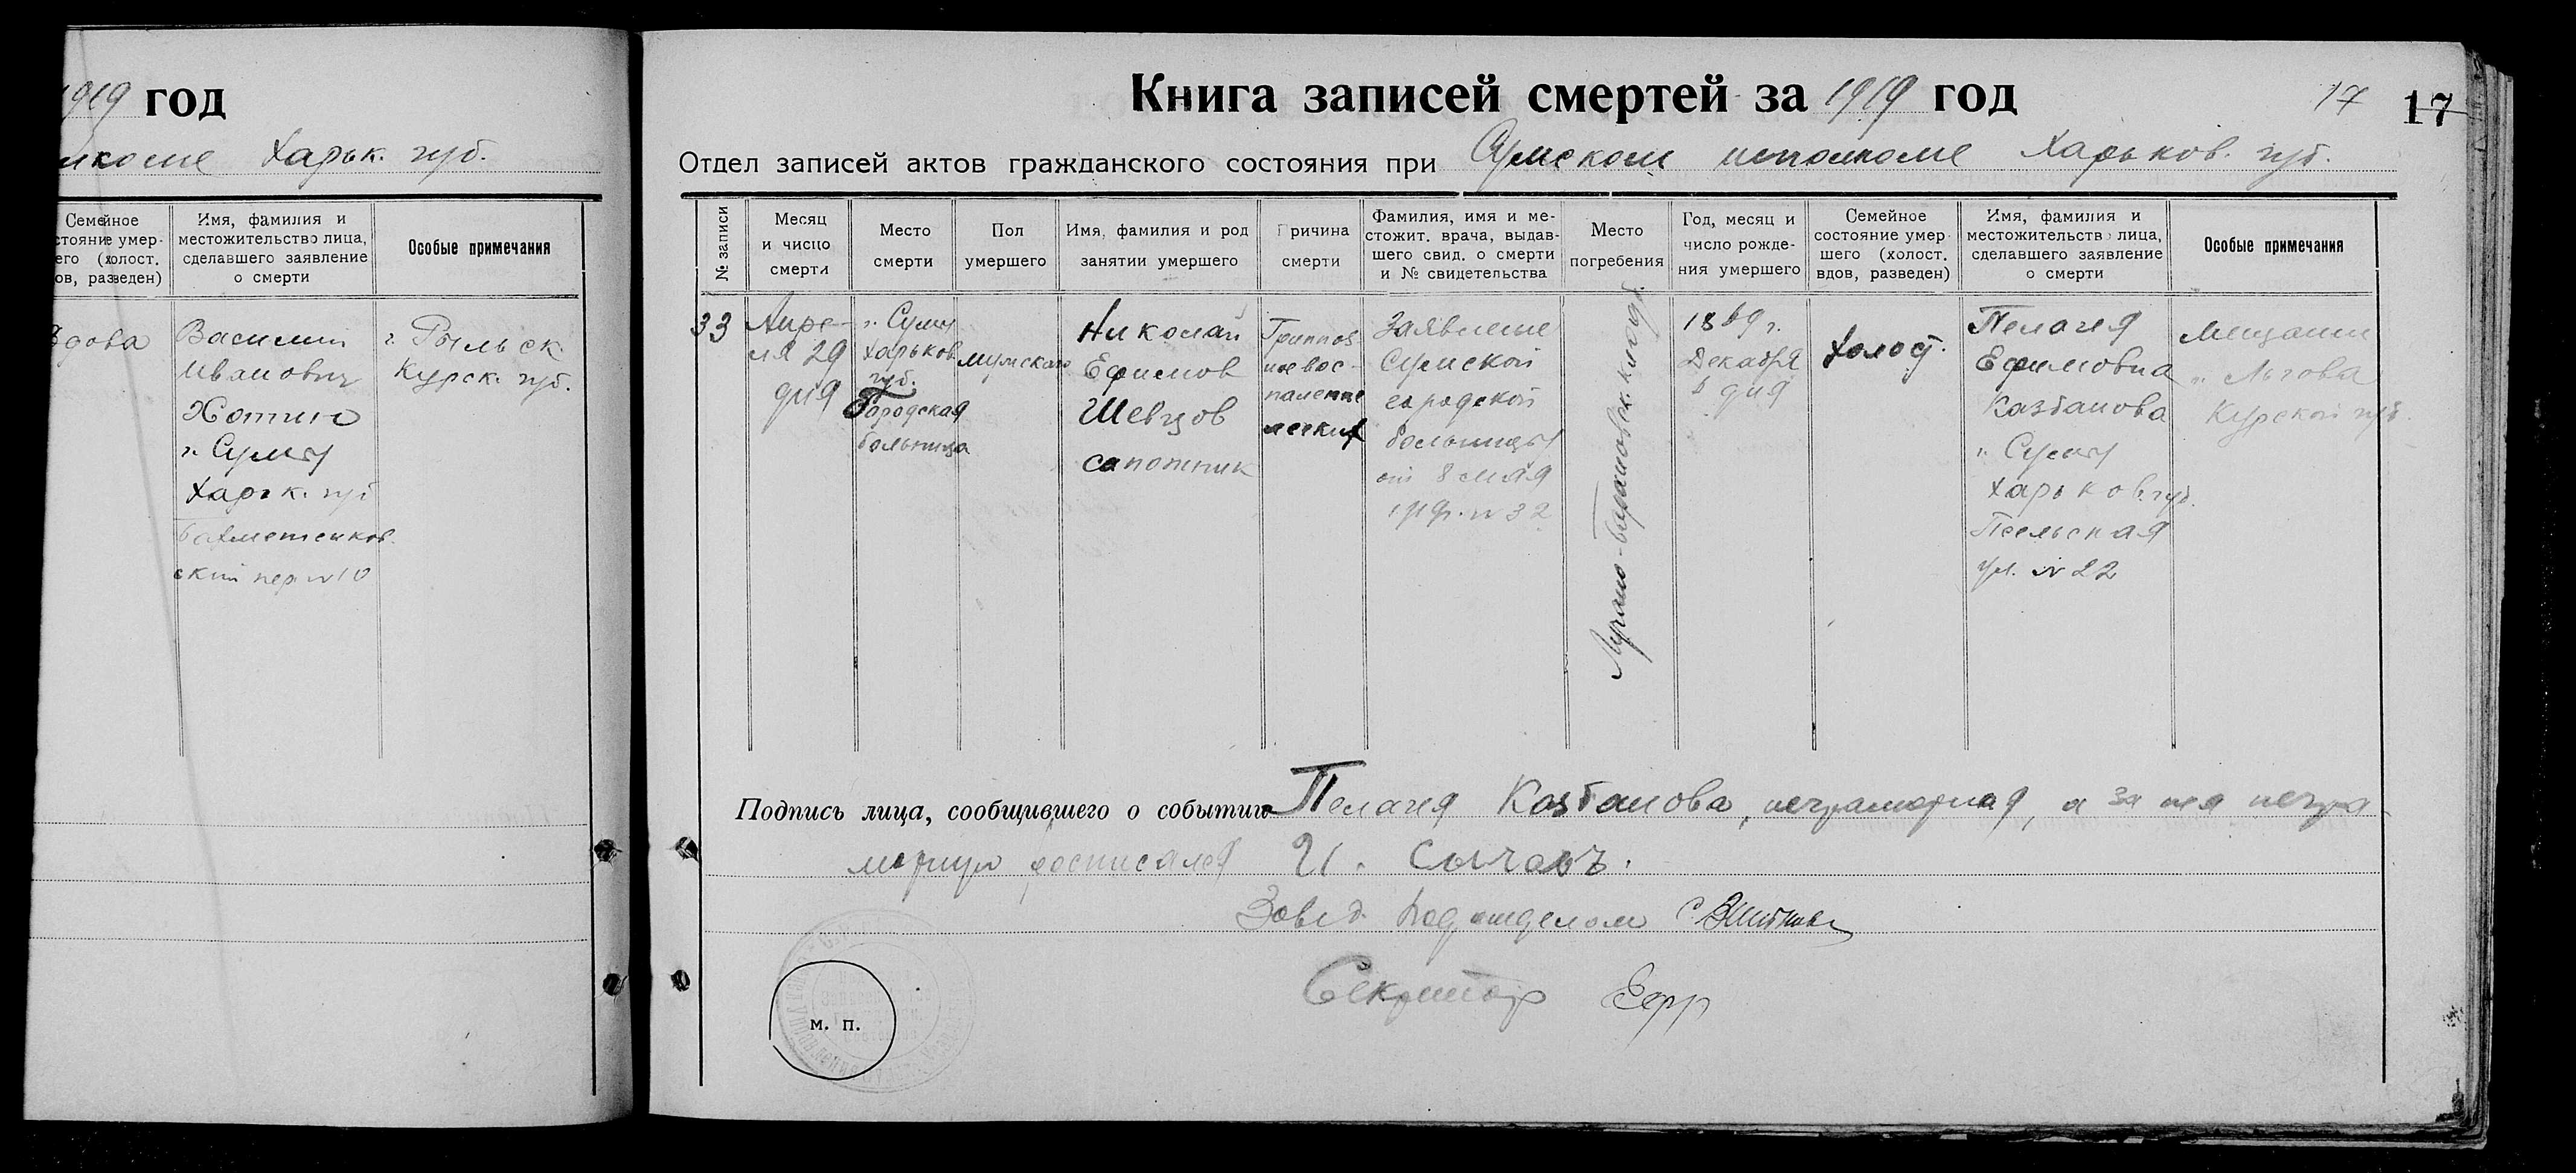 1919 год
Харьк. губ.
Семейное
стояние умер-
его (холост.
ов, разведен)
Имя, фамилия и
местожительство лица,
сделавшего заявление
о смерти
Особые примечания
вдова
Василий
Иванович
Хотин
г. Сумы
Харьк. губ
ский пер. № 10
г. Рыльск
Курск. губ.
Книга записей смертей за 1919 год
17
17
Отдел записей актов гражданского состояния при Сумском исполкоме Харьков. губ.
№ записи
Месяц
и число
смерти
Место
смерти
Пол
умершего
Имя, фамилия и род
занятии умершего
Причина
смерти
Фамилия, имя и ме-
стожит. врача, выдав-
шего свид. о смерти
и № свидетельства
Место
погребения
Год, месяц и
число рожде-
ния умершего
Семейное
состояние умер-
шего (холост.
вдов, разведен)
Имя, фамилия и
местожительство лица,
сделавшего заявление
о смерти
Особые примечания
33
Апре-
ля 29
дня
г. Сумы
Харьков.
губ.
Городская
больница
мужского
Николай
Ефимов
Шевцов
сапожник
Гриппоз
ное вос-
паление
легких
Заявление
Сумской
городской
больницы
от 8 мая
№ 32
Декабря
6 дня
Холост.
Пелагея
Ефимовна
г. Сумы
Харьков. губ.
Псельская
ул. № 22
Мещанин
г. Льгова
Курской губ.
Подпись лица, сообщившего о событии Пелагея неграмотная, а за нея негра
мотную росписался И. Сычовъ.
Завед. Подотделом
Секретарь
м. п.